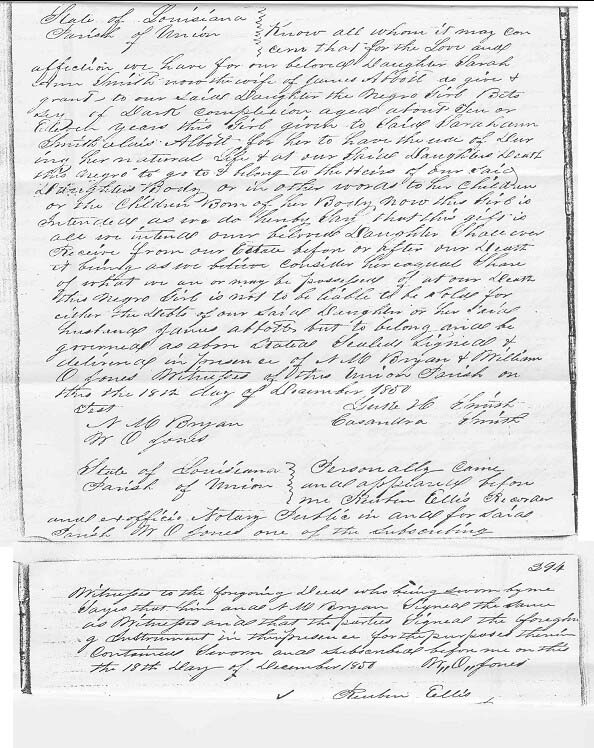 State of Louisiana
Parish of Union
Know all whom it may con
cern that for the Love and
affection we have for our beloved Daughter Sarah
Ann Smith now the wife of James Abbott do give &
grant to our said Daughter the Negro Girl Bets
ey of Dark Complexion aged about Ten or
Eleven years this Girl given to said Sarahann
Smith alais Abbott for her to have the use of Dur
ing her natural Life & at our said Daughters Death
this Negro to go & belong to the Heirs of our said
Daughters Body or in other words to her Children
or the Children Born of her Body now this Girl is
intended as we do herby Say that this gift is
all we intend our beloved Daughter Shall ever
Receive from our Estate before or after our Death
it being as we believe Consider her equal Share
of what we are or may be possessed of at our Death
this Negro Girl is not to be liable to be Sold for
either the Debts of our Said Daughter or her Said
husband James abbotts but to belong and be
governed as above Stated Sealed Signed &
delivered in presence of N M Bryan & William
O Jones Witnesses of this Union Parish on
this the 18th day of December 1850
Test
N M Bryan
W O Jones
Smith
Casandra Smith
State of Louisiana
Parish of Union
Personally Came
and appeared before
me Reuben Ellis Recorder
and exofficio Notary Public in and for Said
Parish W O Jones one of the Subscribing
394
Witnesses to the forgoing Deed who being sworn by me
Says that him and N M Bryan Signed the same
as Witnesses and that the parties Signed the foregoin
g Instrument in the presence for the purposes therein
Contained Sworn and Subscribed before me on this
the 18th Day of December 1850
W,, O,, Jones
Reuben Ellis